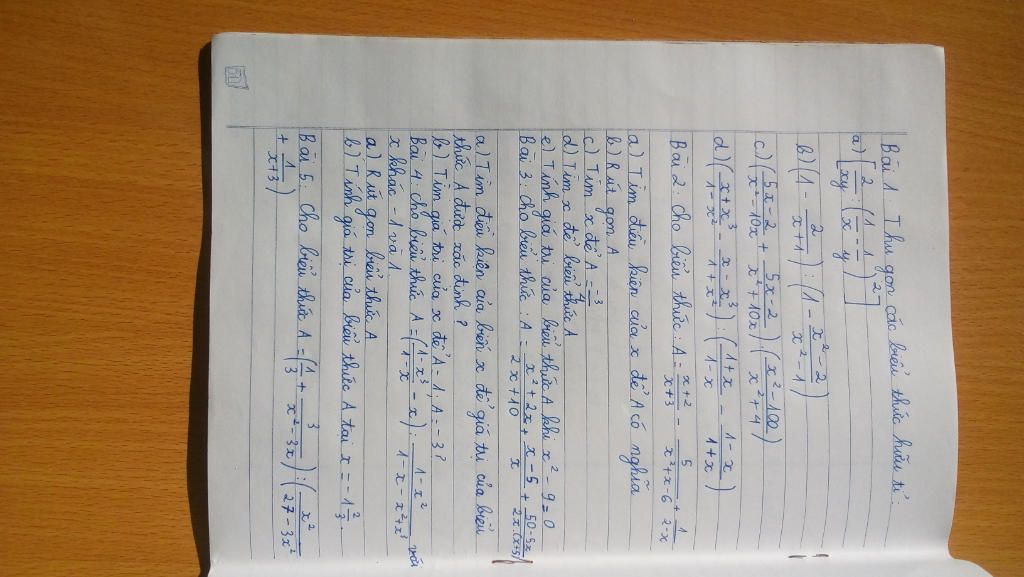 Bài 1: Thu gọn các biểu thức hữu tỉ:
a) [2/xy : (1/x - 1/y)^2]
b) (1 - 2/(x+1)) : (1 - (x^2-2)/(x^2-1))
c) ((5x-2)/(x^2-10x) + (5x-2)/(x^2+10x)) ((x^2-100)/(x^2+4))
d) ((x+x^3)/(1-x^2) - (x-x^3)/(1+x^2)) : ((1+x)/(1-x) - (1-x)/(1+x))
Bài 2: Cho biểu thức: A = (x+2)/(x+3) - 5/(x^2+x-6) + 1/(2-x)
a) Tìm điều kiện của x để A có nghĩa
b) Rút gọn A
c) Tìm x để A = -3/4
d) Tìm x để biểu thức A
e) Tính giá trị của biểu thức A khi x^2 - 9 = 0
Bài 3: cho biểu thức: A = (x^2+2x)/(2x+10) + (x-5)/x + (50-5x)/(2x.(x+5))
a) Tìm điều kiện của biến x để giá trị của biểu
thức A được xác định?
b) Tìm giá trị của x để A = 1; A = -3?
Bài 4: cho biểu thức A = ((1-x^3)/(1-x) - x) : (1-x^2)/(1-x-x^2+x^3) với
x khác -1 và 1
a) Rút gọn biểu thức A
b) Tính giá trị của biểu thức A tại x = -1 2/3.
Bài 5: Cho biểu thức A = (1/3 + 3/(x^2-3x)) : (x^2/(27-3x^2)
+ 1/(x+3))